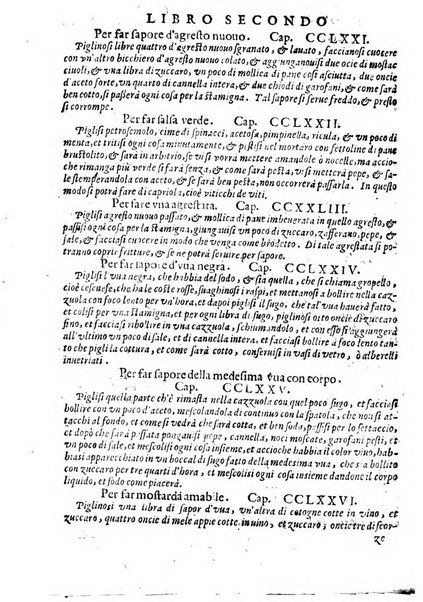 LIBRO SECONDO
Per far sapore d'agresto nuouo. Cap. CCLXXI.
Piglinosi libre quattro d'agresto nuouo sgranato, & lauato, faccianosi cuocere
con vn'altro bicchiero d'agresto nuouo colato, & aggiunganouisi due ocie di mostac
ciuoli, & vna libra di zuccaro, vn poco di mollica di pane cosi asciutta, due oncie
d'aceto forte, vn quarto di cannella intera, & due chiodi di garofani, & come sarà
ben cotto, si passerà ogni cosa per la stamigna. Tal sapore si serue freddo, & presto
si corrompe.
Per far salsa verde. Cap. CCLXXII.
Piglisi petrosemolo, cime di spinacci, acetosa, pimpinella, ricula, & vn poco di
menta, et tritisi ogni cosa minutamente, & pistisi nel mortaro con fettoline di pane
brustolito, & sarà in arbitrio, se vi si vorrà mettere amandole ò nocelle, ma accio-
che rimanga più verde si farà senza, & come sarà pesta, vi si metterà pepe, & sa-
le stemperandola con aceto, & se sarà ben pesta, non occorrerà passarla. In questo
modo si potrà fare di capriola, cioè viticchi de viti.
Per fare vna agrestata. Cap. CCXXLIII.
Piglisi agresto nuouo passato, & mollica di pane imbeuerata in quello agresto, &
passisi ogni cosa per la stamigna, giungauisi vn poco di zuccaro, zafferano, pepe,
& sale, & facciasi cuocere in modo che venga come brodetto. Di tale agrestata si po-
tranno coprir fritture, & se ne potrà seruire per sapore.
Per far sapore d'vua negra. Cap. CCLXXIV.
Piglisi l'vua negra, che habbia del sodo, & sia quella, che si chiama gropello,
cioè cesenese, che hà le coste rosse, suaghinosi i raspi, et mettanosi a bollire nella caz
zuola con foco lento per vn'hora, et dapoi piglisi il sugo, che tal vua hauerà fatto,
et colisi per vna stamigna, et per ogni libra di sugo, piglinosi otto oncie di zuccaro,
et facciasi ribollire in vna cazzuola, schiumandolo, et con esso si aggiungerà
all'vltimo vn poco di sale, et di cannella intera, et bollirà à foco lento fin
to che pigli la cottura, et come sarà cotto, conseruisi in vasi di vetro, ò alberelli
inuetriati.
Per far sapore della medesima vua con corpo.
Cap. CCLXXV.
Piglisi quella parte ch'è rimasta nella cazzuola con quel poco sugo, et facciasi
bollire con vn poco d'aceto, mescolandola di continuo con la spatola, che non si at-
tacchi al fondo, et come si vedrà che sarà cotta, et disfatta, passisi per lo settaccio,
et dapò che sarà passata pongauisi pepe, cannella, noci moscate, garofani pesti, et
vn poco di sale, et mescolisi ogni cosa insieme, et acciochè habbia il color viuo, hab-
biasi apparecchiato in vn boccal di sugo fatto della medesima vua, che sia bollito
con zuccaro per tre quarti d'hora, et mescolisi ogni cosa insieme dandone il corpo
liquido, et sodo come piacerà.
Per far mostarda amabile. Cap. CCLXXVI.
Piglinosi vna libra di sapor d'vua, vn'altra di cotogne cotte in vino, et
zuccaro, quattro oncie di mele appie cotte in vino, et zuccaro; oncie tre di scor-
ze